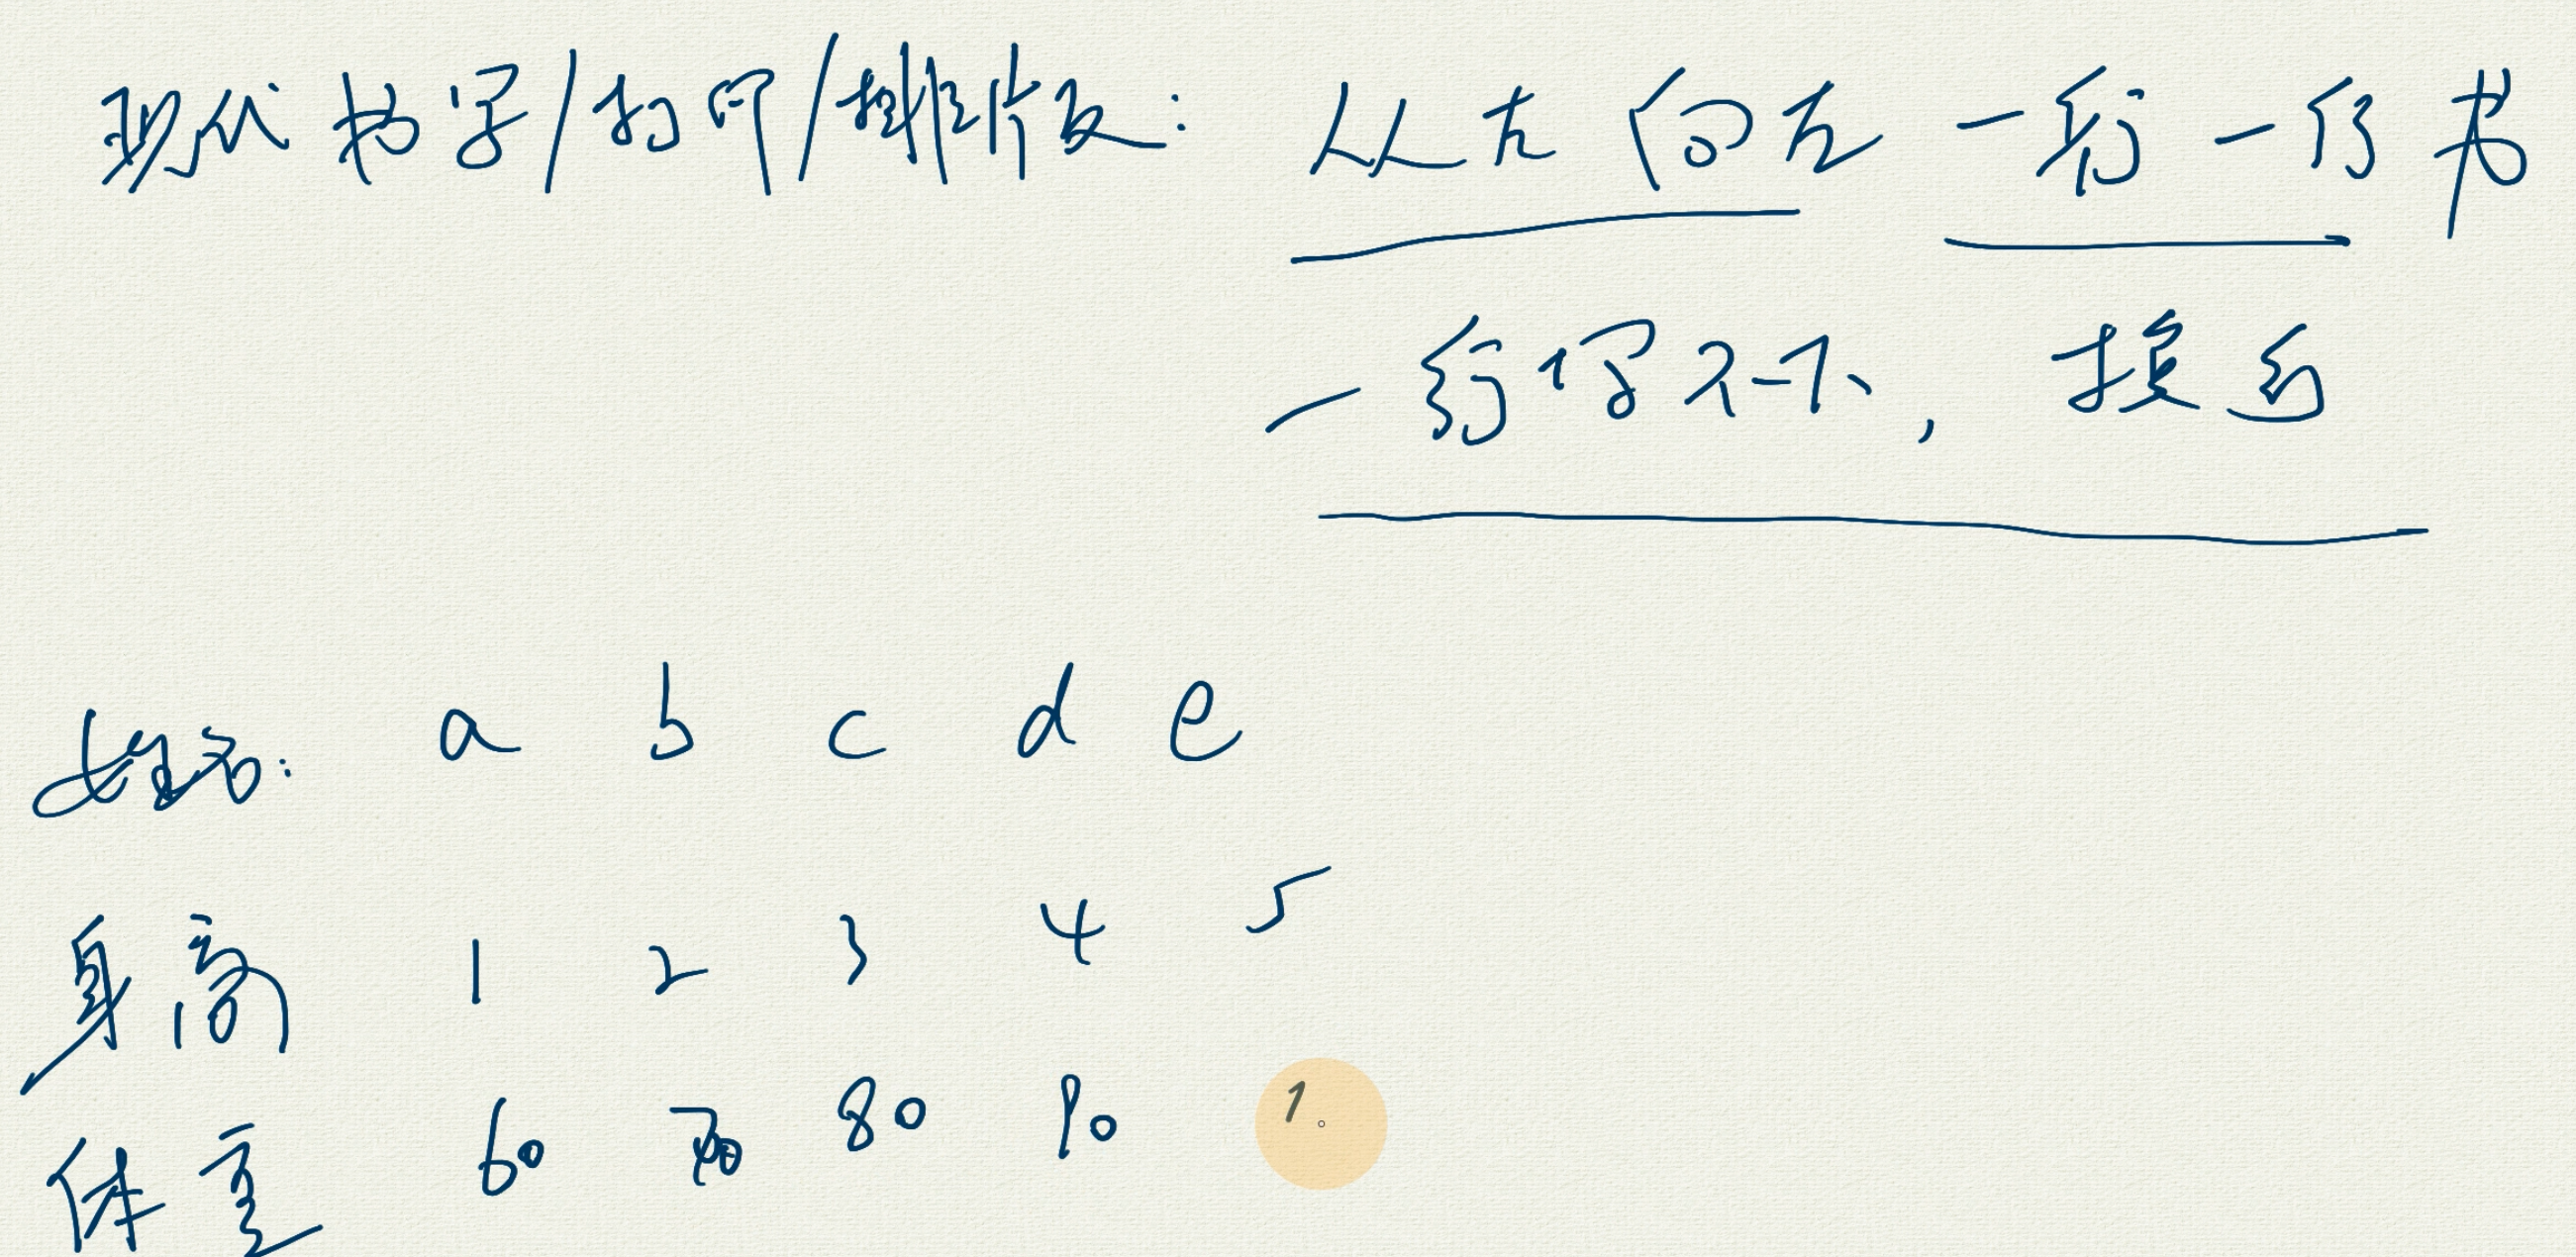 现代书写/打印/排版: 从左向右 一行一行书
一行写不下, 换行
姓名: a b c d e
身高 1 2 3 4 5
体重 60 70 80 90 1